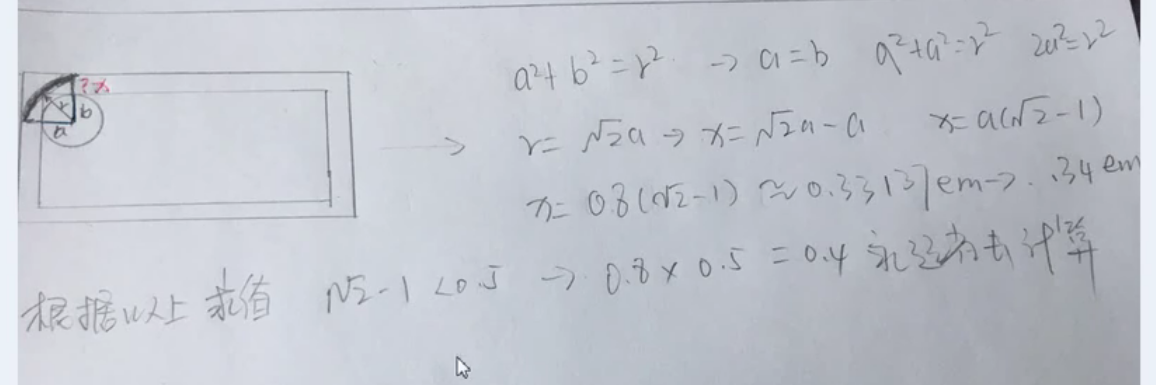 a²+b²=r² → a=b a²+a²=r² 2a²=r²
?x
r
b
a
→ r=√2a → x=√2a-a x=a(√2-1)
x=0.8(√2-1)≈0.33137em→.34em
根据以上求值 √2-1<0.5 → 0.8×0.5=0.4 计算